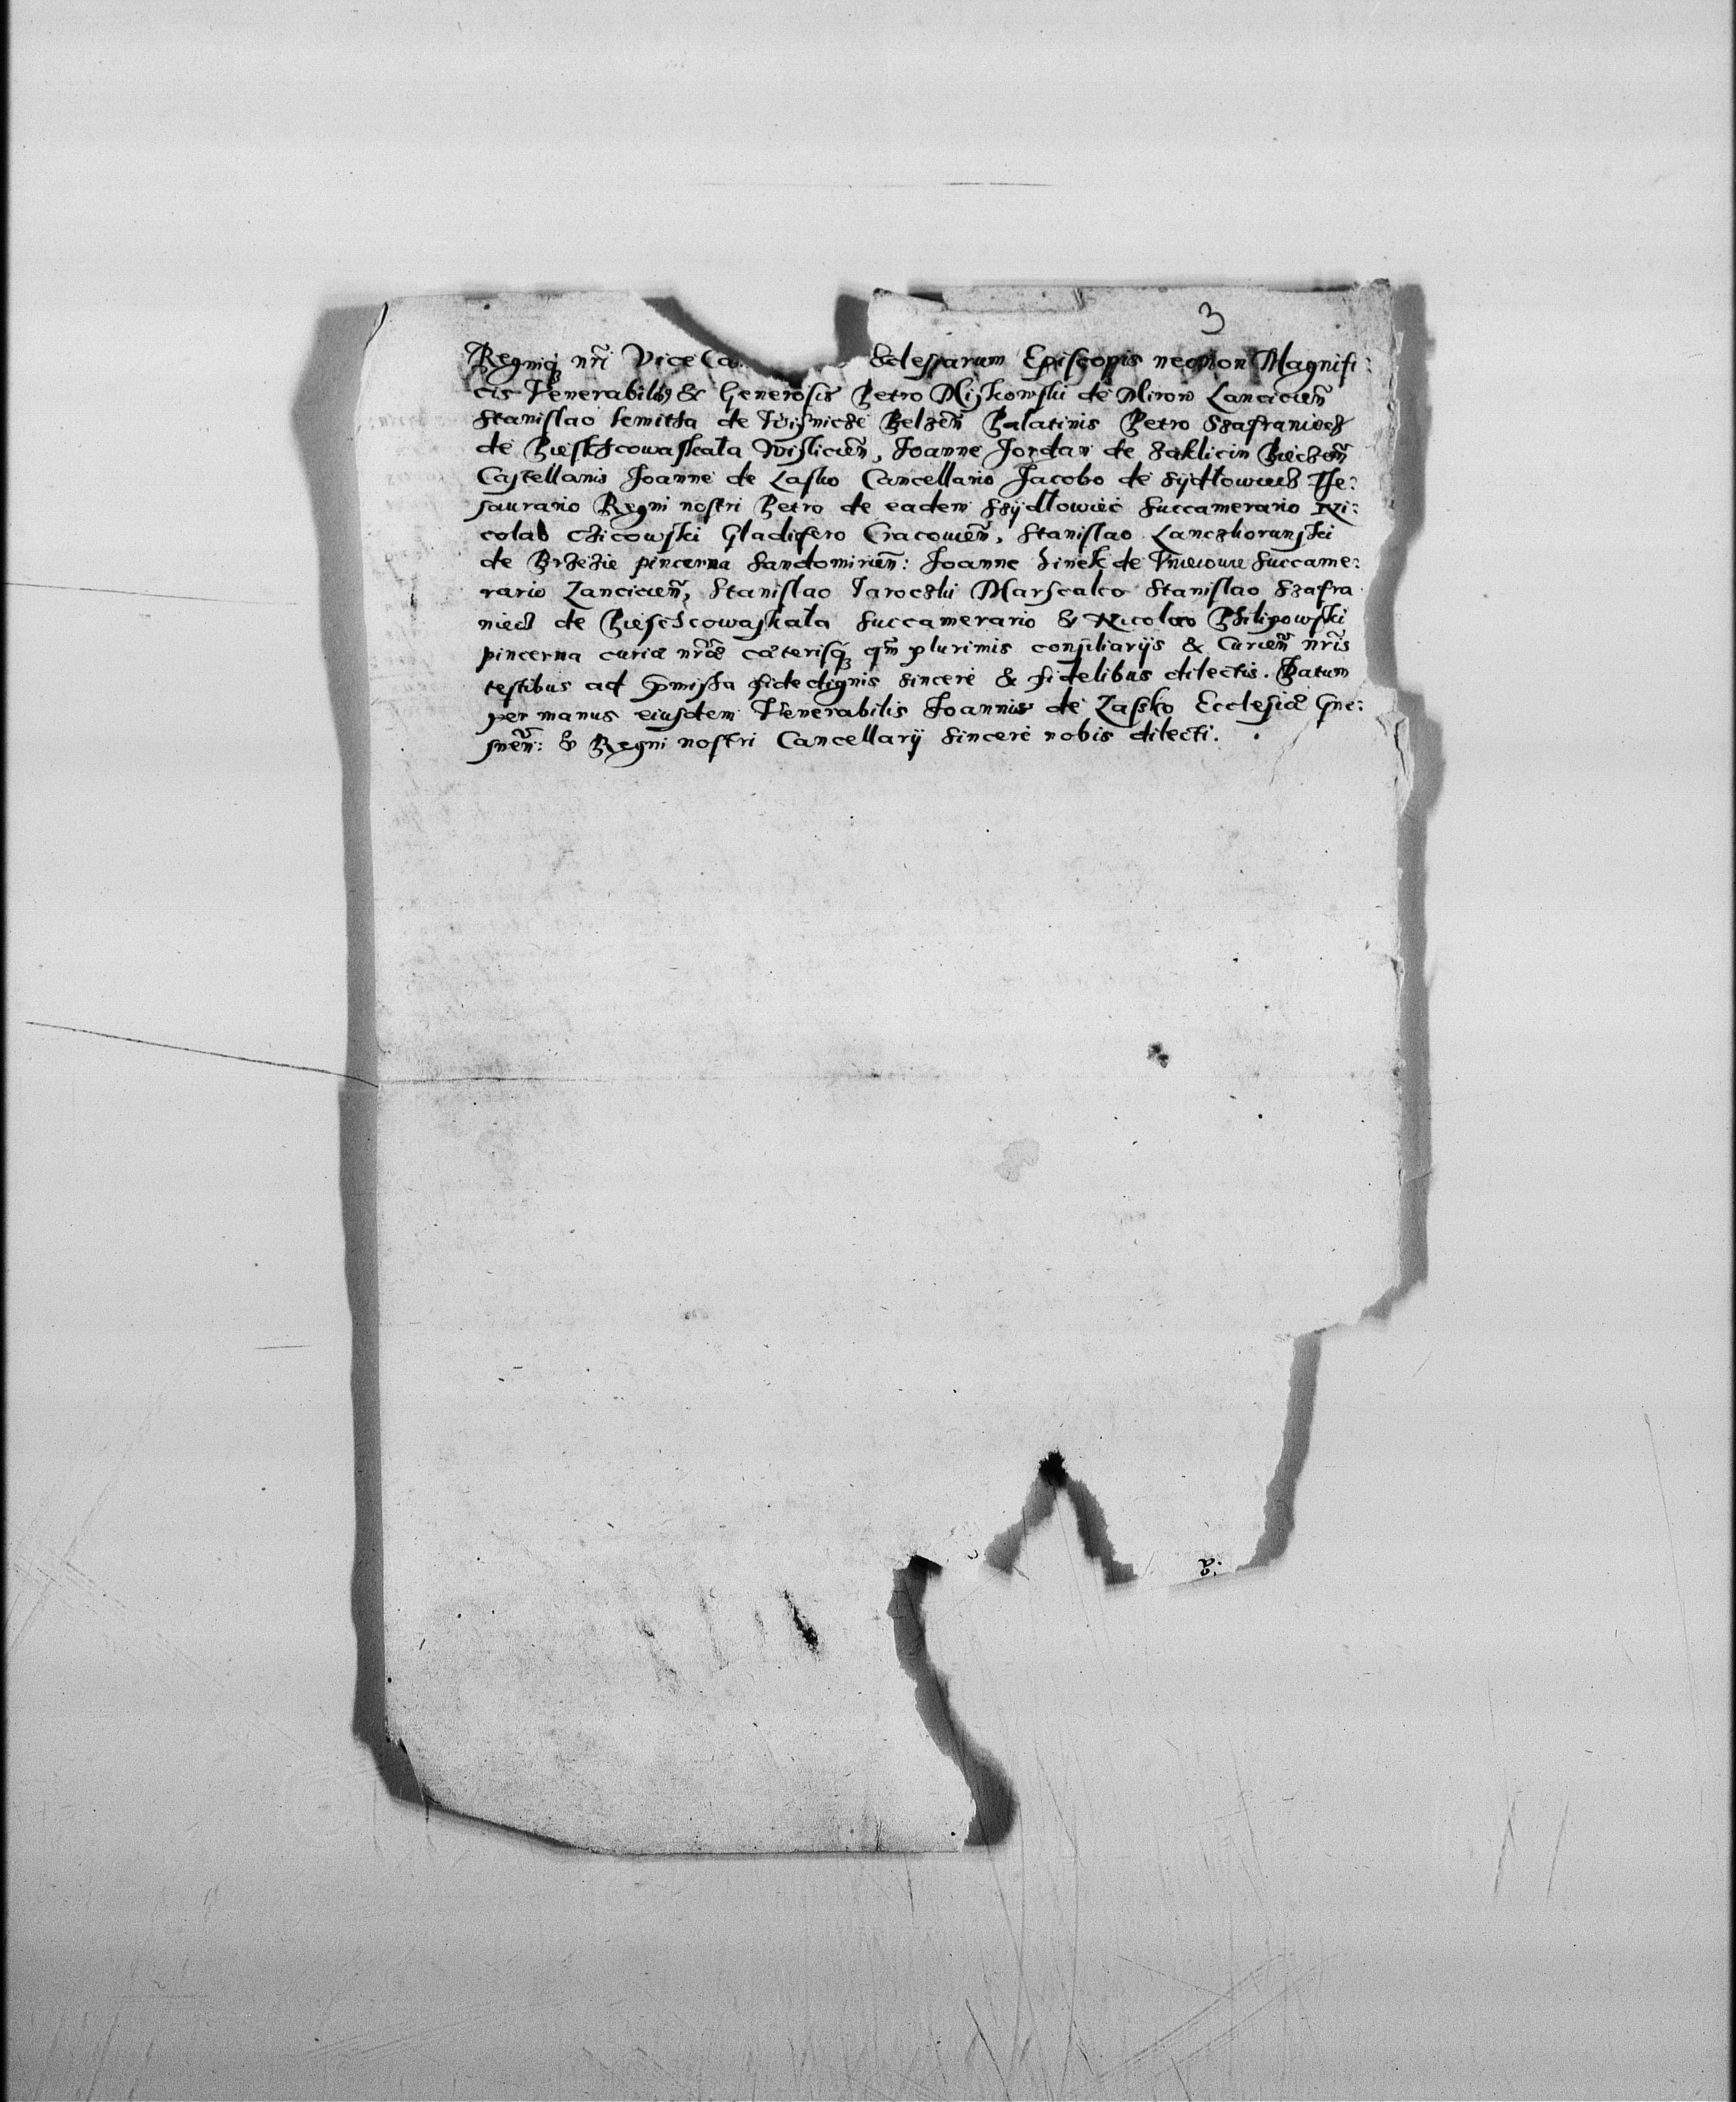 3
Regniq nr̃i Vice Ca Eclesiarum Episcopis necnon Magnifi:
cis Venerabilib9 & Generosis Petro Miskowski de Mirow Lancicieñ
Stanislao kmitha de Wisnicze Belzeñ Palatinis Petro Szafraniecz
de Pieskscowaskala Wislicieñ, Joanne Jordan de Zaklicin Bieczeñ
Castellanis Joanne de Lasko Cancellario Jacobo de Sydlowiecz The:
saurario Regni nostri Petro de eadem Szydlowiec Succamerario Ni:
colao Czicowski Gladifero Cracovieñ, Stanislao Lanczkorunski
de Brzezie pincerna Sandomirieñ: Joanne Sinek de Succame:
rario Lancicieñ, Stanislao Jaroczki Marscalco Stanislao Szafra
niecz de Piesczcowaskala Succamerario & Nicolao Philipowski
pincerna curiæ nr̃æ cæterisq qm̃ plurimis consiliarijs & Curieñ nr̃is
testibus ad p̃missa fide dignis sincere & fidelibus dilectis. Datum
per manus eiusdem Venerabilis Joannis de Lasko Ecclesiæ Gne:
sneñ: & Regni nostri Cancellarij sincere nobis dilecti.